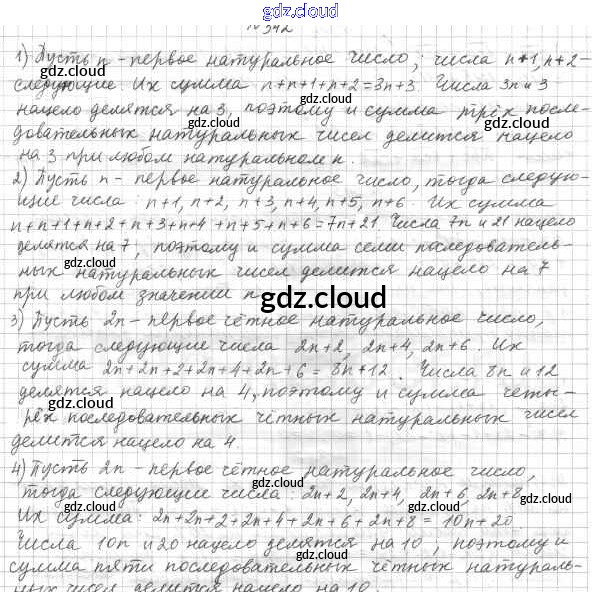 gdz.cloud
№ 942
1) Пусть n - первое натуральное число, числа n+1, n+2 -
следующие. Их сумма n+n+1+n+2=3n+3. Числа 3n и 3
нацело делятся на 3, поэтому и сумма трёх после-
довательных натуральных чисел делится нацело
на 3 при любом натуральном n.
2) Пусть n - первое натуральное число, тогда следую-
щие числа: n+1, n+2, n+3, n+4, n+5, n+6. Их сумма
n+n+1+n+2+n+3+n+4+n+5+n+6=7n+21. Числа 7n и 21 нацело
делятся на 7, поэтому и сумма семи последователь-
ных натуральных чисел делится нацело на 7
при любом значении n
gdz.cloud
3) Пусть 2n - первое чётное натуральное число,
тогда следующие числа 2n+2, 2n+4, 2n+6. Их
сумма 2n+2n+2+2n+4+2n+6 = 8n+12. Числа 8n и 12
делятся нацело на 4, поэтому и сумма четы-
рёх последовательных чётных натуральных чисел
делится нацело на 4.
4) Пусть 2n - первое чётное натуральное число,
тогда следующие числа: 2n+2, 2n+4, 2n+6, 2n+8
Их сумма: 2n+2n+2+2n+4+2n+6+2n+8 = 10n+20.
Числа 10n и 20 нацело делятся на 10; поэтому и
сумма пяти последовательных чётных натураль-
ных чисел делится нацело на 10.
gdz.cloud
gdz.cloud
gdz.cloud
gdz.cloud
gdz.cloud
gdz.cloud
gdz.cloud
gdz.cloud
gdz.cloud
gdz.cloud
gdz.cloud
gdz.cloud
gdz.cloud
gdz.cloud